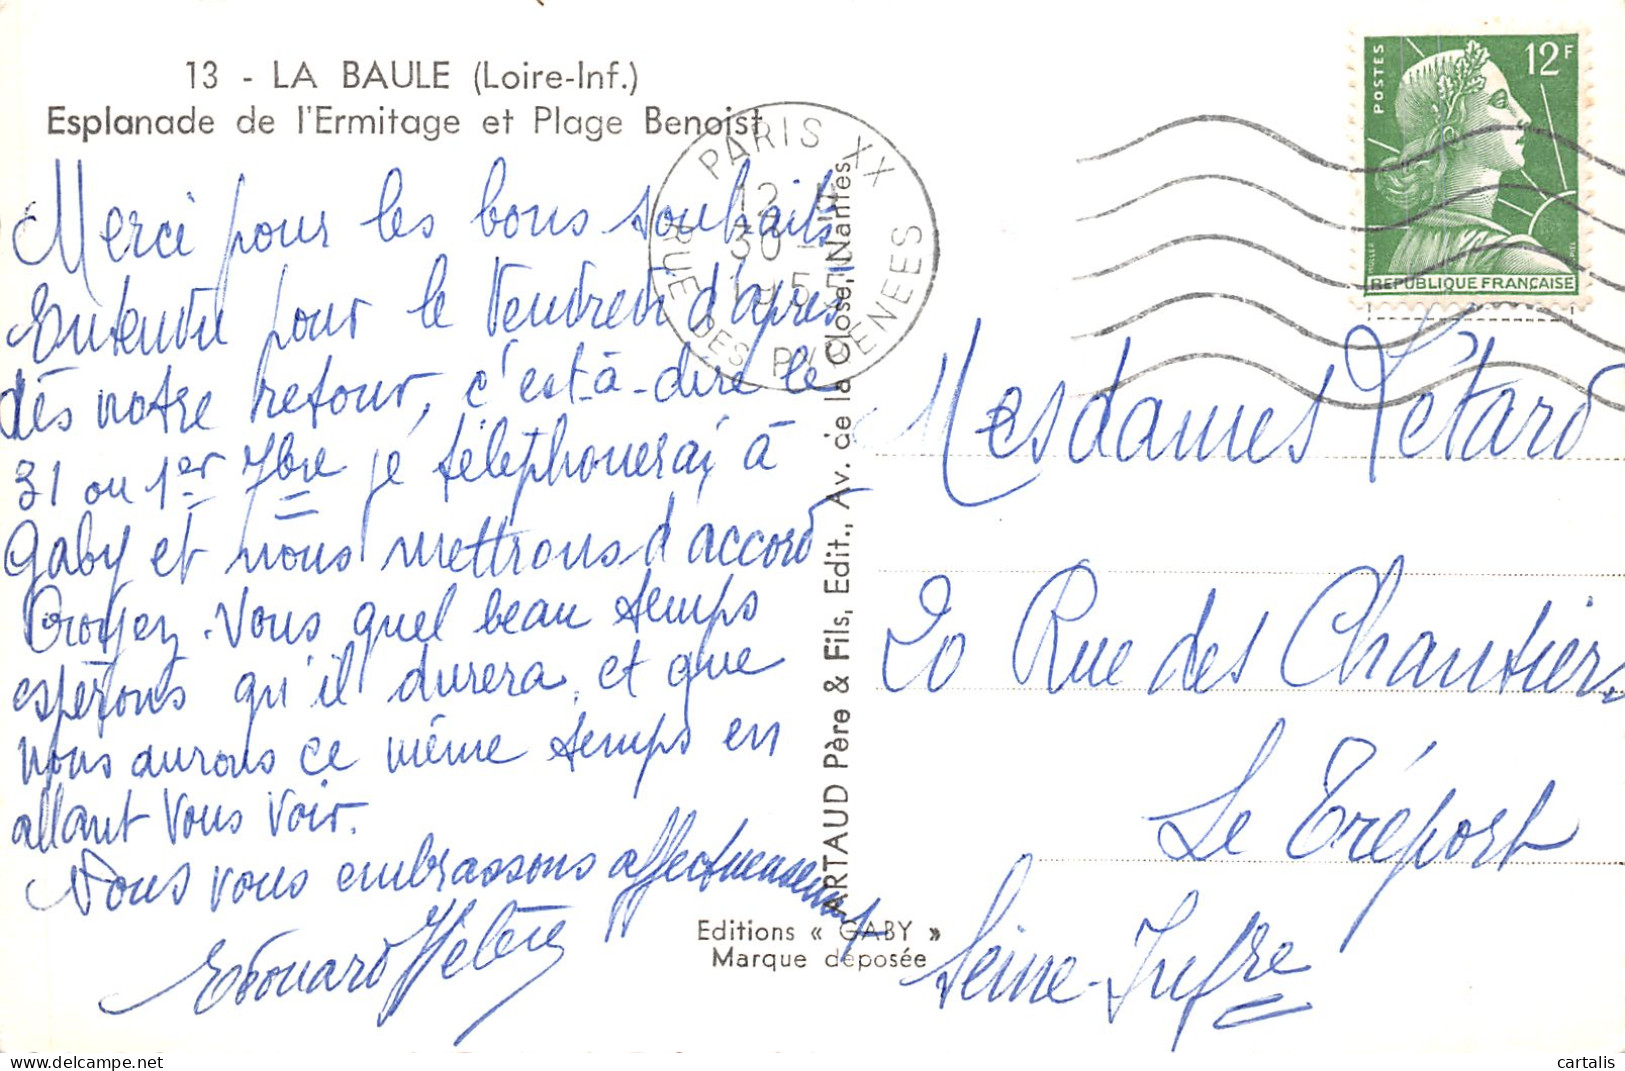 13 - LA BAULE (Loire-Inf.)
Esplanade de l'Ermitage et Plage Benoist
Merci pour les bons souhaits
Entendu pour le Vendredi d'après
dès notre retour, c'est-à-dire le
31 ou 1er 7bre je téléphonerai à
Gaby et nous mettrons d'accord
Croyez-Vous quel beau temps
espérons qu'il durera, et que
nous aurons ce même temps en
allant vous voir.
Nous vous embrassons affectueusement
Edouard Hélène
ARTAUD Père & Fils, Edit., Av. de la Close, Nantes
Editions « GABY »
Marque déposée
PARIS XX
RUE DES PYRENEES
12 H
30 -
195
POSTES
12F
REPUBLIQUE FRANÇAISE
Mesdames Létard
20 Rue des Chantiers
Le Tréport
Seine-Infre
cartalis